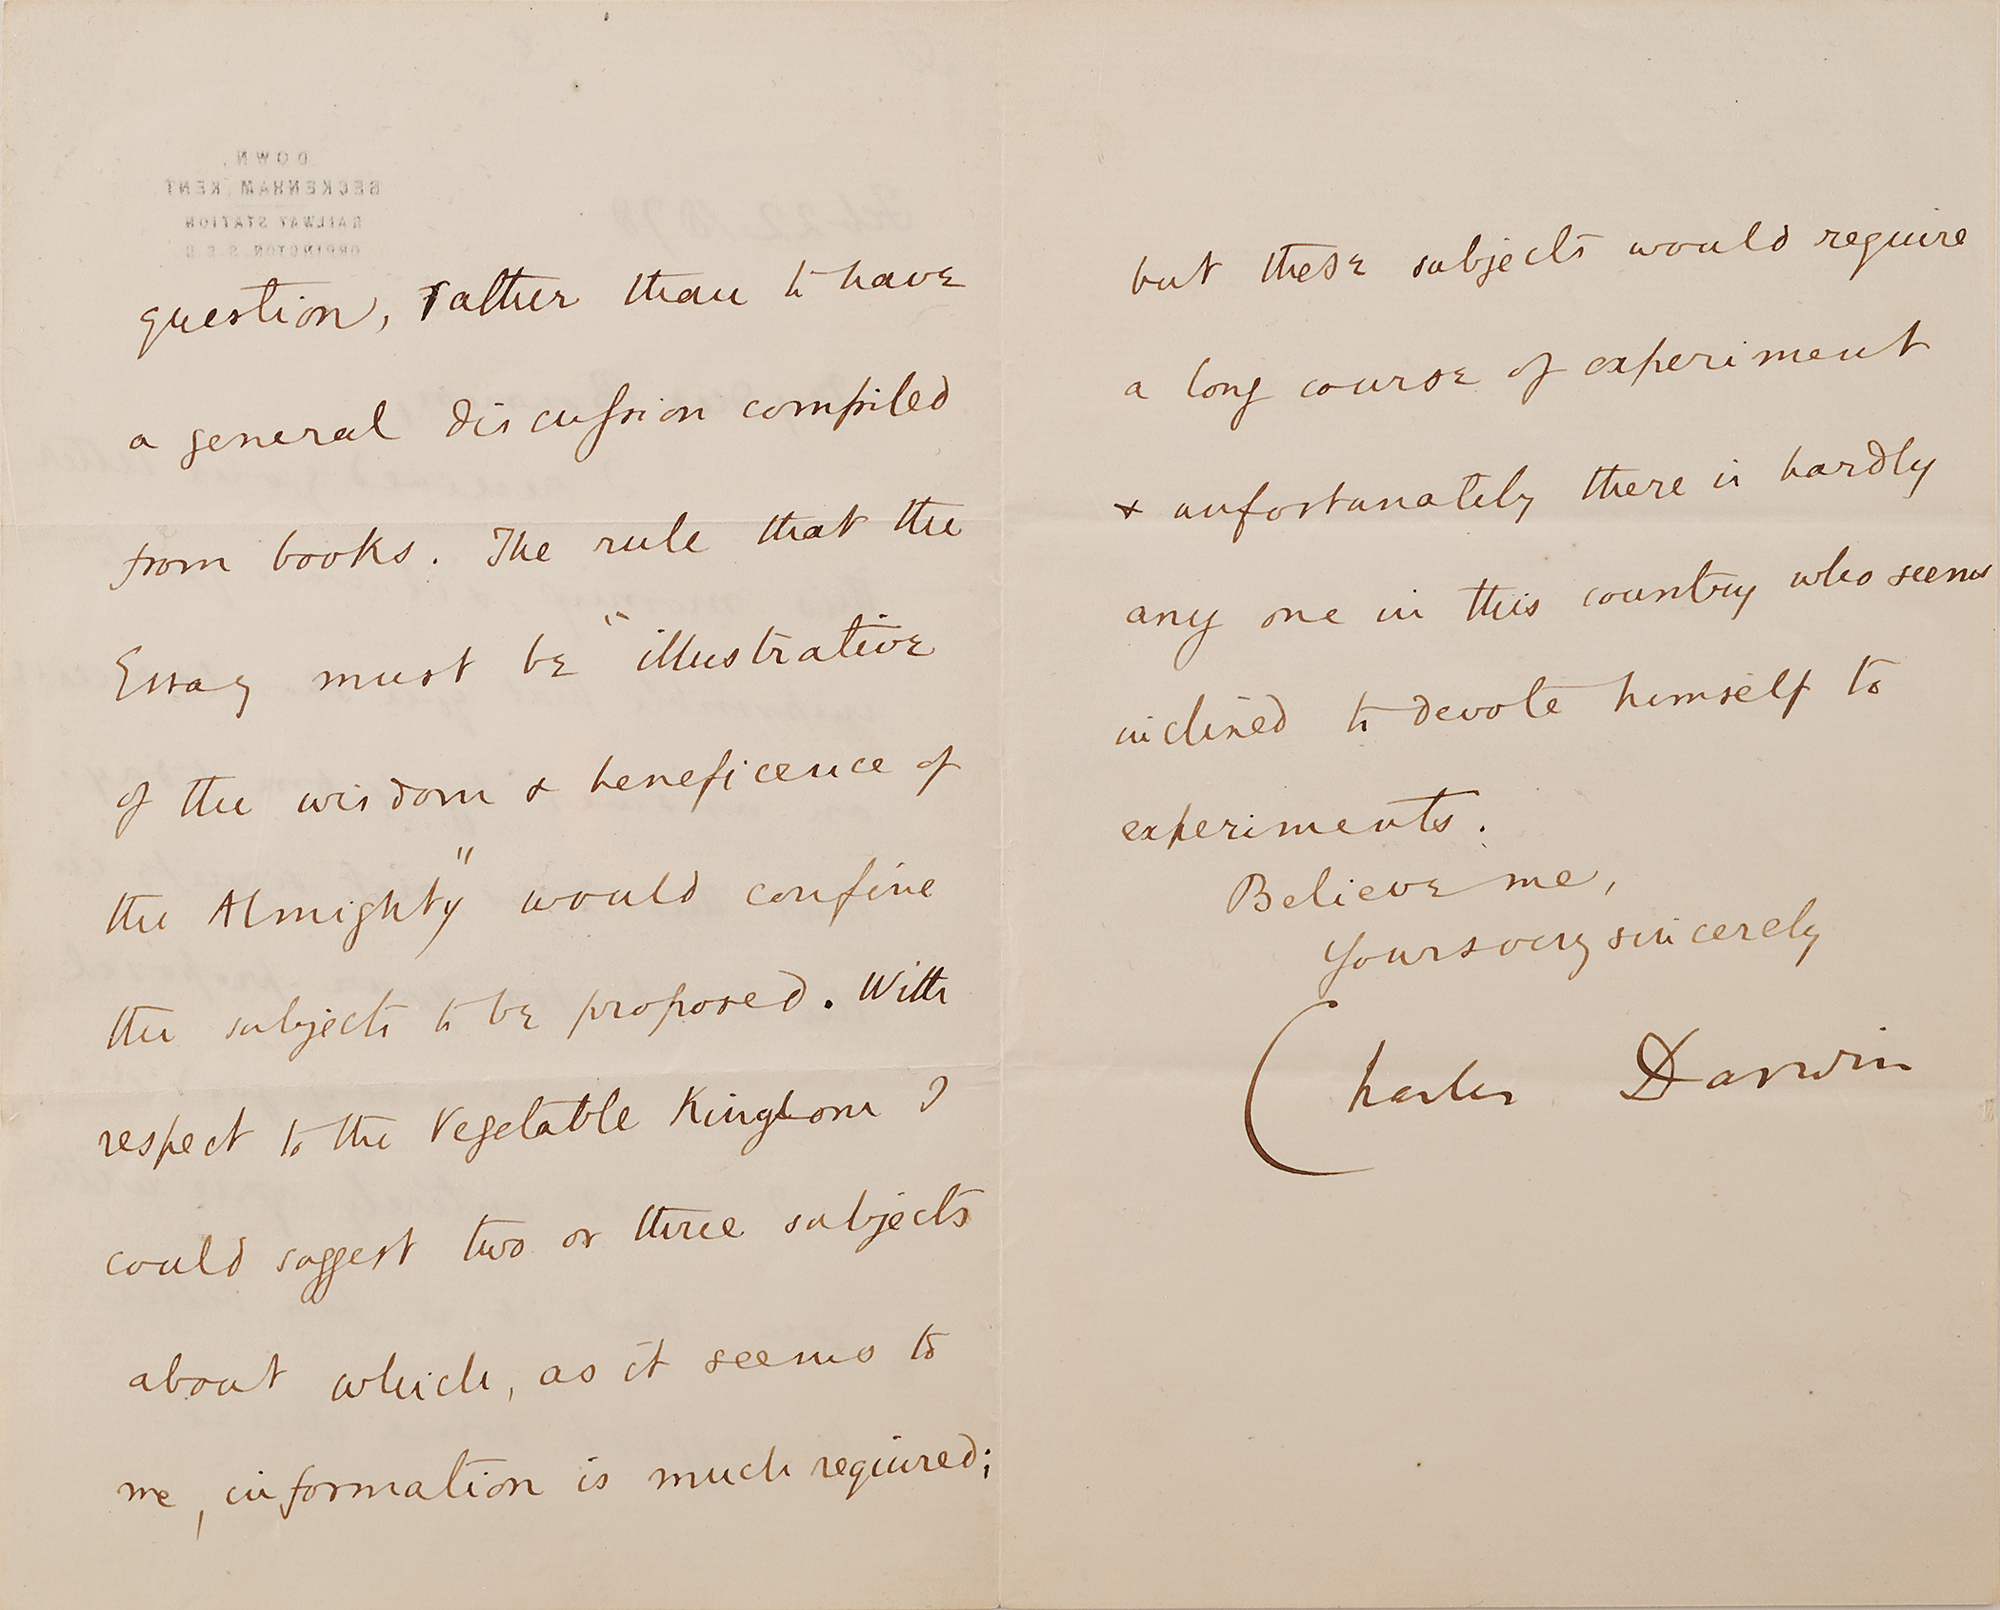 DOWN,
BECKENHAM, KENT.
RAILWAY STATION
ORPINGTON. S.E.R.
Feb 22 1879
question, rather than to have
a general discussion compiled
from books. The rule that the
Essay must be "illustrative
of the wisdom & beneficence of
the Almighty" would confine
the subjects to be proposed. With
respect to the Vegetable Kingdom I
could suggest two or three subjects
about which, as it seems to
me, information is much required;
but these subjects would require
a long course of experiment
& unfortunately there is hardly
any one in this country who seems
inclined to devote himself to
experiments.
Believe me,
Yours very sincerely
Charles Darwin